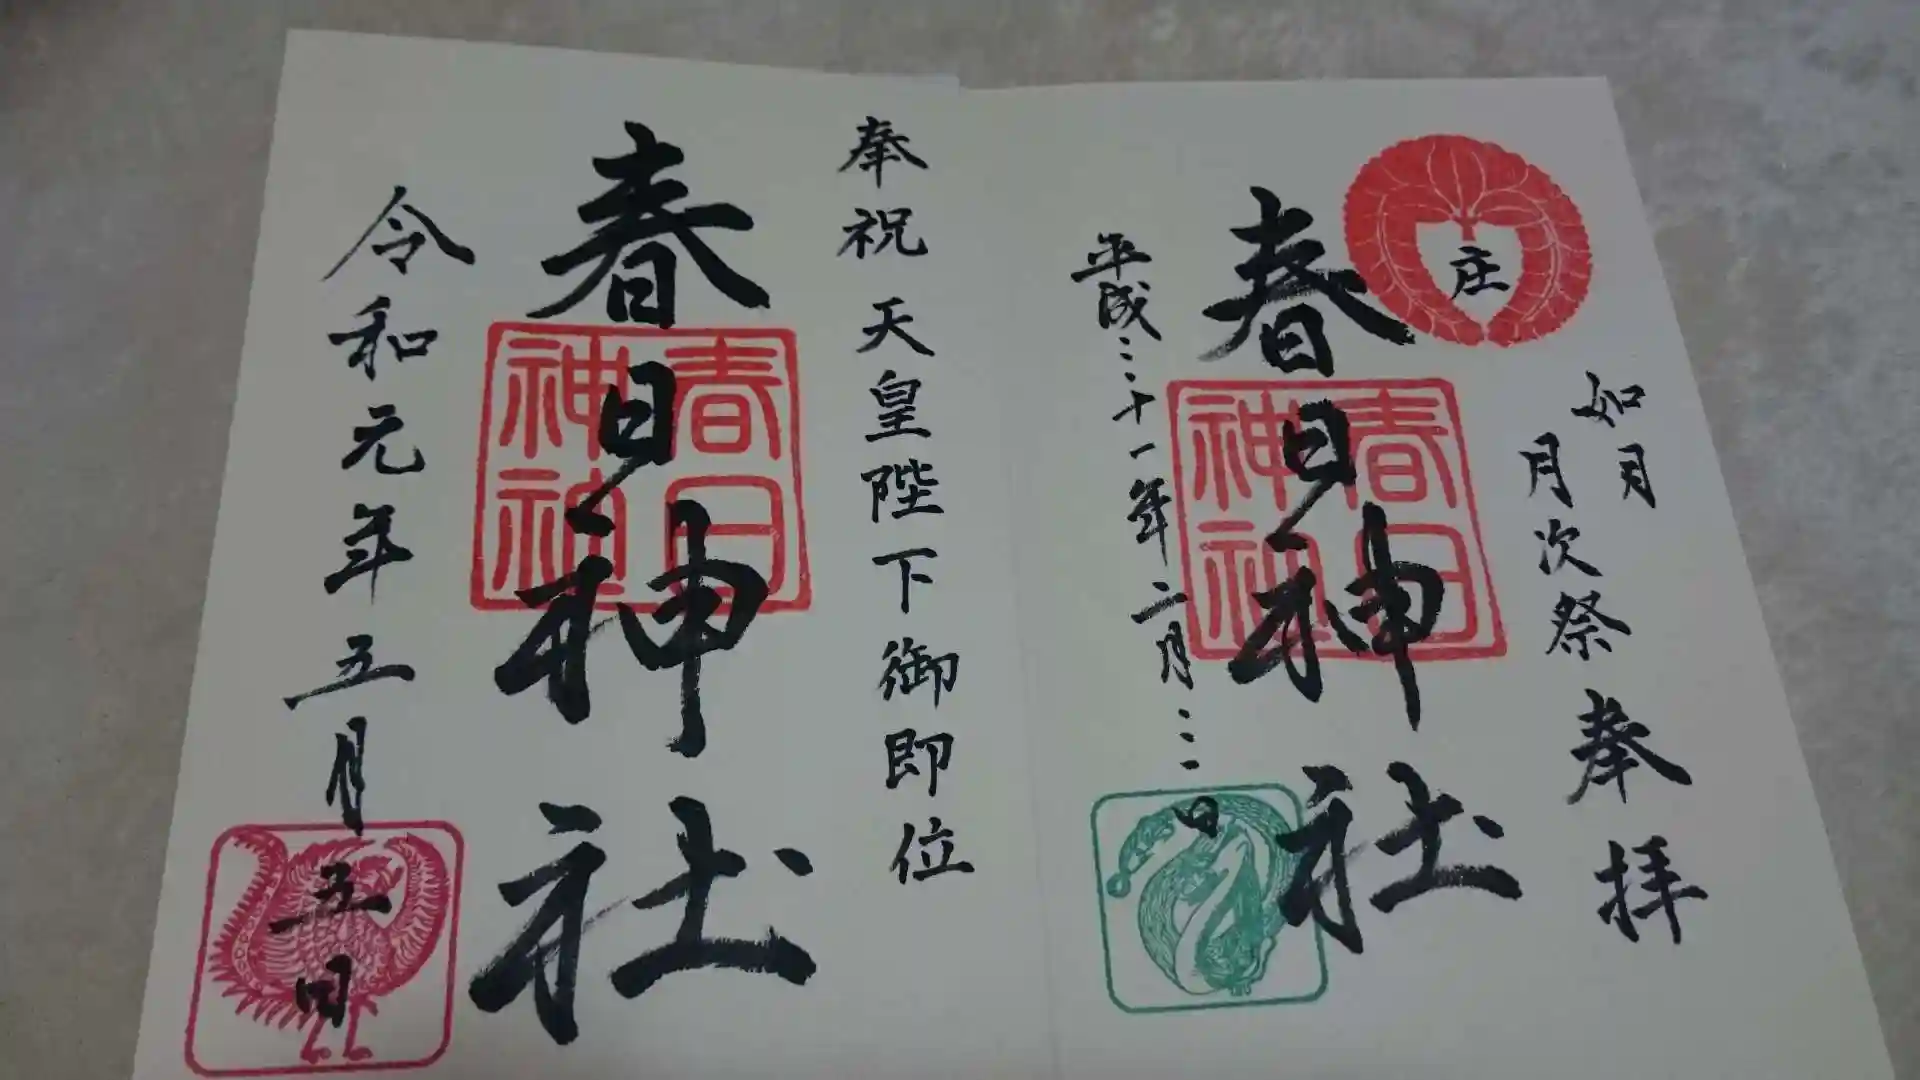 庄
如月
月次祭 奉拝
春日神社
春日神社
平成三十一年二月三日
奉祝 天皇陛下御即位
春日神社
春日神社
令和元年五月五日